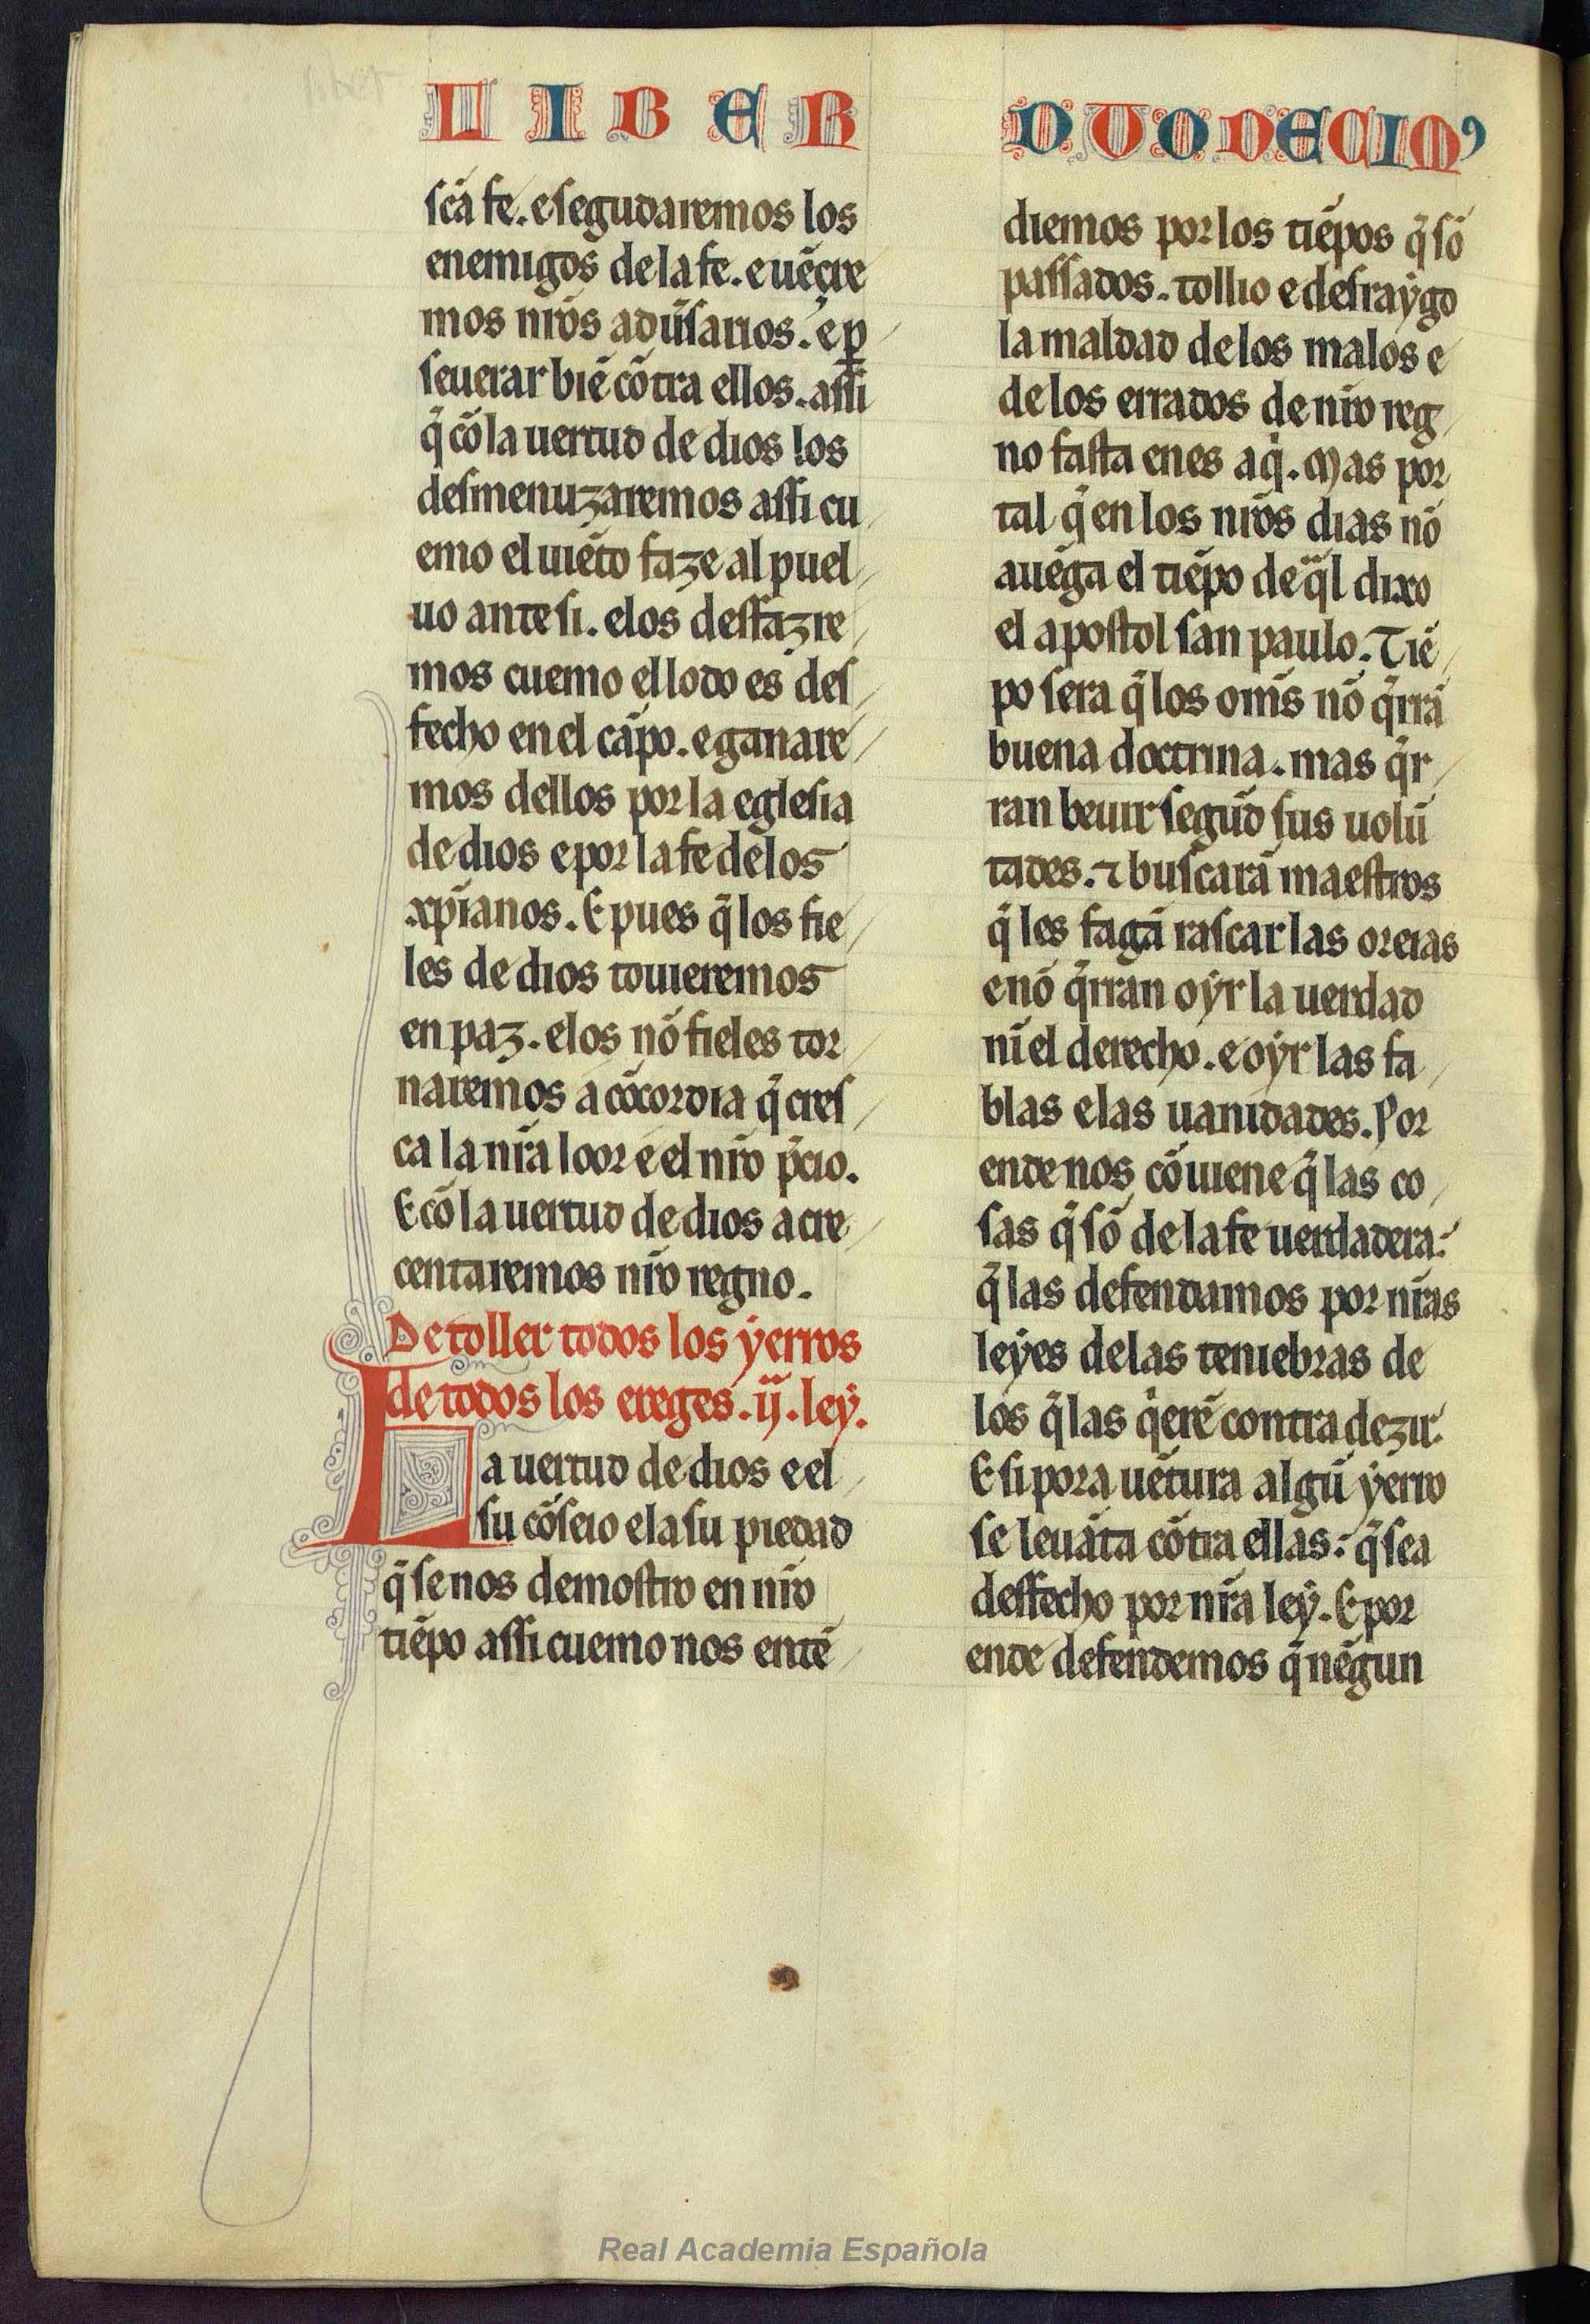 LIBER
DUODECIMꝰ
sc̃a fe. e segudaremos los
enemigos de la fe. e uẽçre
mos nr̃os adũsarios. e ꝑ
seuerar biẽ cõtra ellos. assi
q̃ cõ la uertud de dios los
desmenuzaremos assi cu
emo el uiẽto faze al puel
uo ante si. e los desfazre
mos cuemo el lodo es des
fecho en el cãpo. e ganare
mos dellos por la eglesia
de dios e por la fe de los
xp̃ianos. E pues q̃ los fie
les de dios touieremos
en paz. e los nõ fieles tor
naremos a cõcordia q̃ cres
ca la nr̃a loor e el nr̃o p̃cio.
E cõ la uertud de dios acre
centaremos nr̃o regno.
De toller todos los ẏerros
de todos los ereges. ij. leẏ.
La uertud de dios e el
su cõseio e la su piedad
q̃ se nos demostro en nr̃o
tiẽpo assi cuemo nos entẽ
diemos por los tiẽpos q̃ sõ
passados. tollio e desraẏgo
la maldad de los malos e
de los errados de nr̃o reg
no fasta en es aq̃. Mas por
tal q̃ en los nr̃os dias nõ
auẽga el tiẽpo de q̃l dixo
el apostol san paulo. Tiẽ
po sera q̃ los om̃s nõ q̃rrã
buena doctrina. mas q̃r
ran beuir segũd sus uolũ
tades. ⁊ buscarã maestros
q̃ les fagã rascar las oreias
e nõ q̃rran oẏr la uerdad
nĩ el derecho. e oẏr las fa
blas e las uanidades. Por
ende nos cõuiene q̃ las co
sas q̃ sõ de la fe uerdadera:
q̃ las defendamos por nr̃as
leẏes de las teniebras de
los q̃ las q̃erẽ contradezir.
E si por auẽtura algũ ẏerro
se leuãta cõtra ellas: q̃ sea
desfecho por nr̃a leẏ. E por
ende defendemos q̃ nẽgun
Real Academia Española